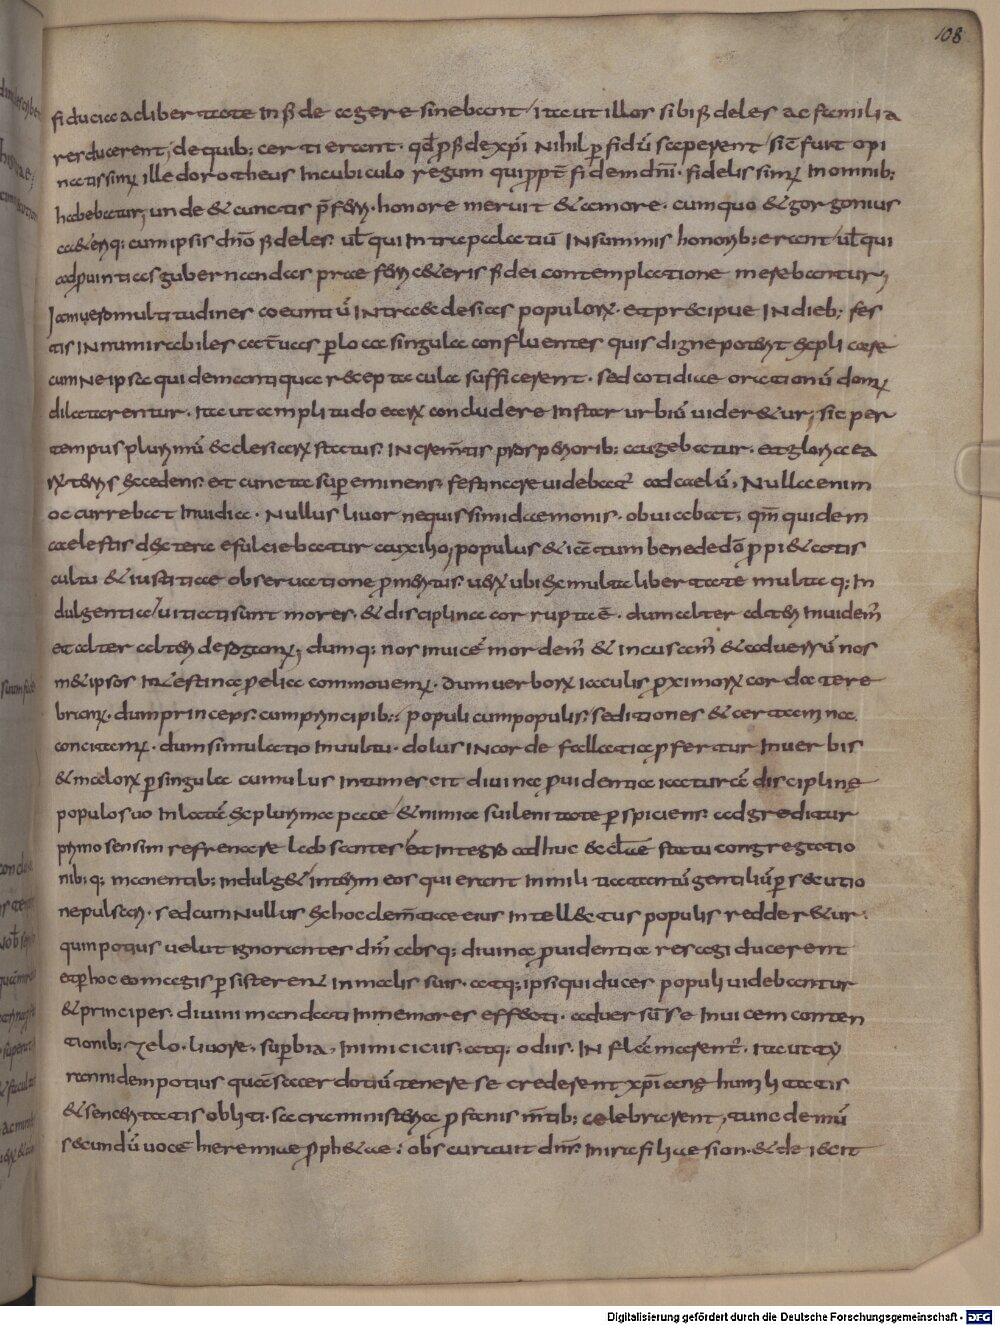 108
fiducia ac libertate in fide agere sinebant, ita ut illos sibi fideles ac familia
res ducerent, de quib; certi erant. qđ p fide xpi Nihil p fidũ saperent, sic̃ fuit opi
natissimus ille dorotheus In cubiculo regum qui ppt̃ fidem dñi. fidelissimus In omnib;
habebatur, unde & cunctis p̃ferri. honore meruit & amore. cum quo & gorgonius
cum ipsis dño fideles. ul̃ qui In tra palatiũ IN summis honorib; erant, ul̃ qui
ad puintias gubernandas prae ceteris fidei contemplatione merebantur,
Iam uero multitudines coeuntiũ INtra ecclesias populorum. et precipue IN dieb; fes
tis IN numirabiles cateruas p loca singula confluentes quis digne poterit expli care
cum Ne ipsa quidem antiqua receptacula sufficerent. sed cotidiae orationũ domus
dilatarentur. Ita ut amplitudo earum concludere Instar urbiũ uider&ur, sic per
tempus plurimũ ecclesiarum status. INcremẽtis prosperiorib; augebatur. et gloria ea
rum terris excedens. et cuncta sup eminens. festinare uidebatur ad caelũ, Nulla enim
occurrebat Inuidia. Nullus liuor nequissimi daemonis. obuiabat, qm̃ quidem
caelestis dextera e fulciebatur auxilio, populus & iã tum bene de dõ p pi&atis
cultu & iustitiae obseruatione p meritus. uerum ubi ex multa libertate multaq; In
dulgentia, uitiati sunt mores. & disciplina corrupta ẽ. dum alter alteri Inuidem̃
et alter alteri derogamus, dumq; nos inuicẽ mordem̃ & incusam̃ & aduersũ nos
m&ipsos Intestina pelia commouemus. dum uerborum iaculis p ximorum corda tere
bramus. dum princeps. cum principib; populi cum populis. seditiones & certamina
concitamus. dum simulatio In uultu. dolus IN corde fallatia p fertur In uerbis
& malorum p singula cumulus Intumescit diuina puidentia iacturã discipline
populo suo In latã ex plurima pace & nimia suilenitate p spiciens. adgreditur
primo sensim refrenare labsantes et Integro adhuc eccl̃iae statu congregatio
nib;q; manentib; indulg& interim eos qui erant In militia tantũ gentiliũ p secutio
ne pulsari. sed cum Nullus ex hoc clemẽtiae eius Intellectus populis redder&ur.
quim potius uelut ignorantes dm̃ absq; diuina puidentia res agi ducerent
et p hoc eo magis p sisterent In malis suis. atq; ipsi qui duces populi uidebantur
& principes. diuini mandati Inmemores effecti. aduersũ se Inuicem conten
tionib; zelo. liuore, supbia, Inimicitiis. atq; odiis. INflãmarentur. Ita ut ty
rannidem potius quã sacerdotiũ tenere se crederent xpiane humilitatis
& senceritatis obliti. sacra ministeria p fanis mẽtib; celebrarent, tunc demũ
secundũ uoce hieremiae pph&ae: obscurauit dñs In ira filiae sion. & deiecit
Digitalisierung gefördert durch die Deutsche Forschungsgemeinschaft - DFG